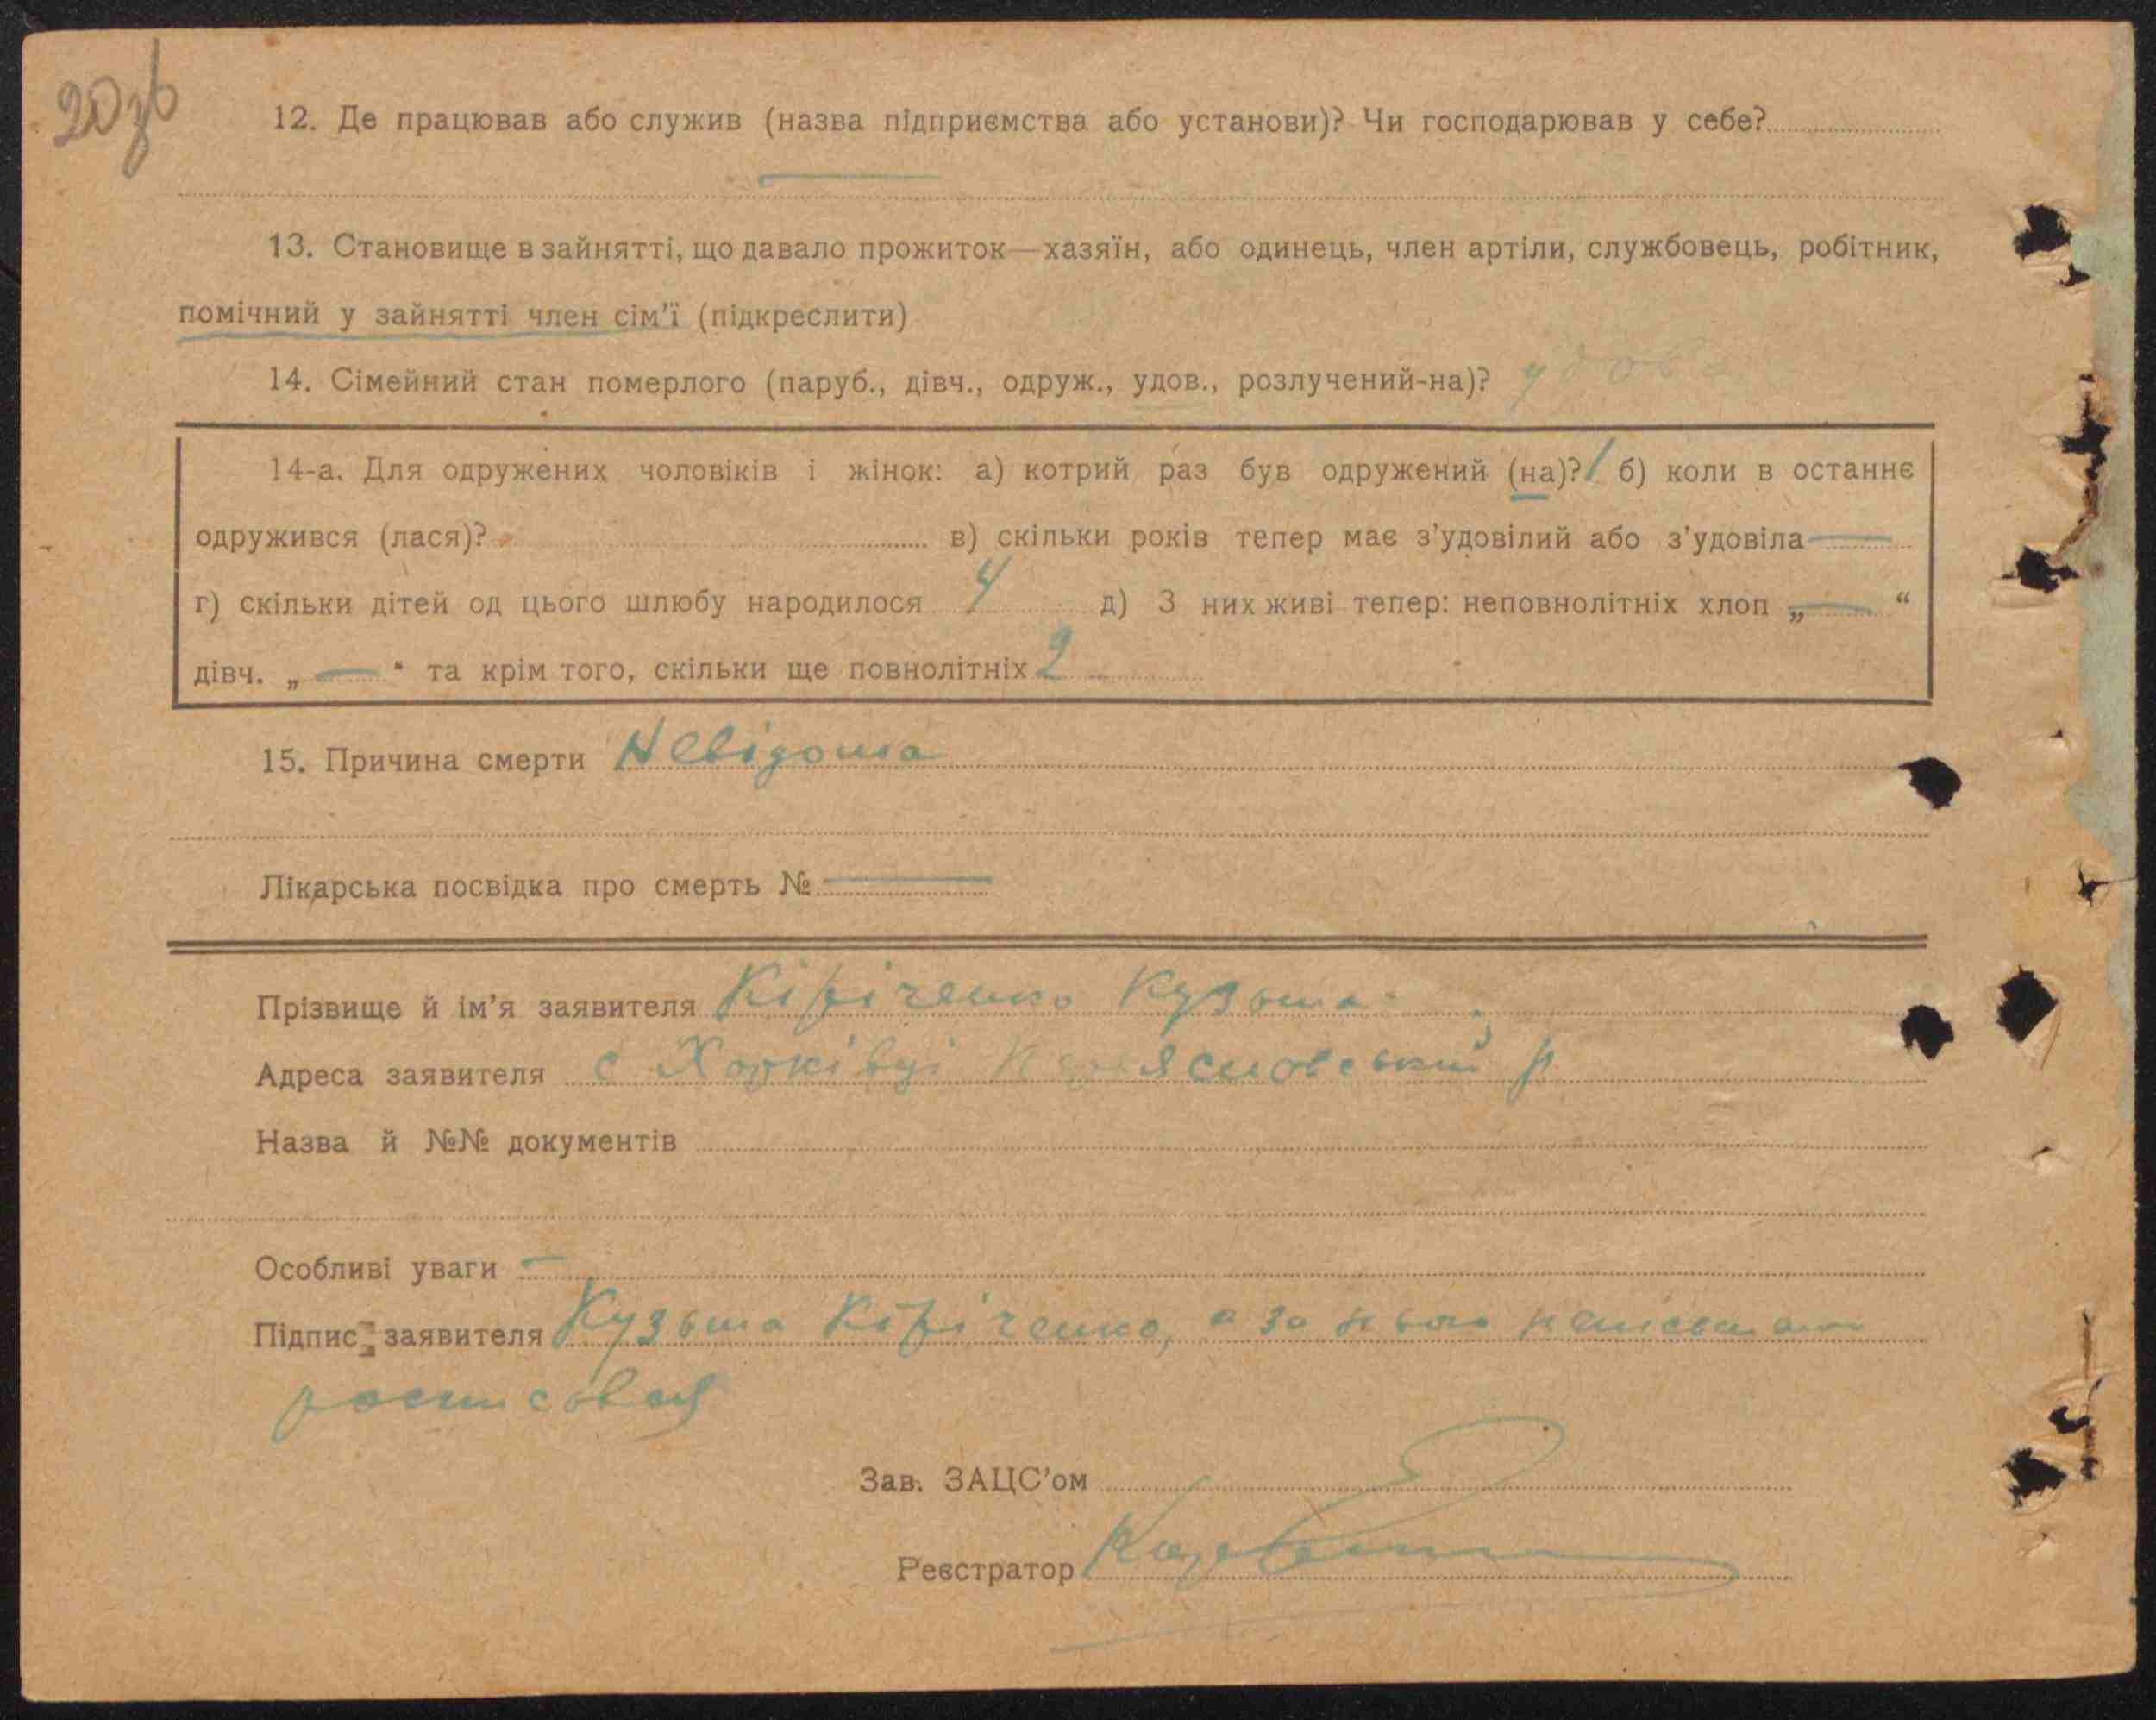 20зв
12. Де працював або служив (назва підприємства або установи)? Чи господарював у себе?
13. Становище в зайнятті, що давало прожиток—хазяїн, або одинець, член артіли, службовець, робітник,
помічний у зайнятті член сім'ї (підкреслити)
14. Сімейний стан померлого (паруб., дівч., одруж., удов., розлучений-на)? удова
14-а. Для одружених чоловіків і жінок: а) котрий раз був одружений (на)? 1 б) коли в останнє
одружився (лася)? в) скільки років тепер має з'удовілий або з'удовіла —
г) скільки дітей од цього шлюбу народилося 4 д) З них живі тепер: неповнолітніх хлоп „ — “
дівч. „ — “ та крім того, скільки ще повнолітніх 2
15. Причина смерти Невідома
Лікарська посвідка про смерть № —
Прізвище й ім'я заявителя Кіріченко Кузьма
Адреса заявителя с Хоцківці р
Назва й №№ документів
Особливі уваги —
Підпис заявителя Кузьма Кіріченко, а за нього
росписовся
Зав. ЗАЦС'ом
Реєстратор